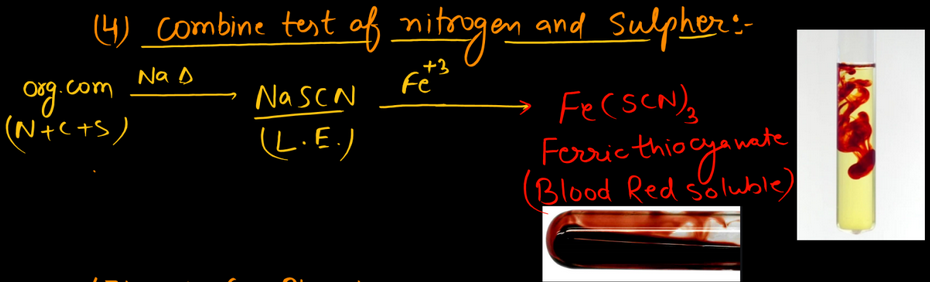 (4) Combine test of nitrogen and Sulpher:-
org.com Na Δ NaSCN Fe+3 Fe(SCN)3
(N+C+S) (L.E.) Ferric thiocyanate
(Blood Red soluble)